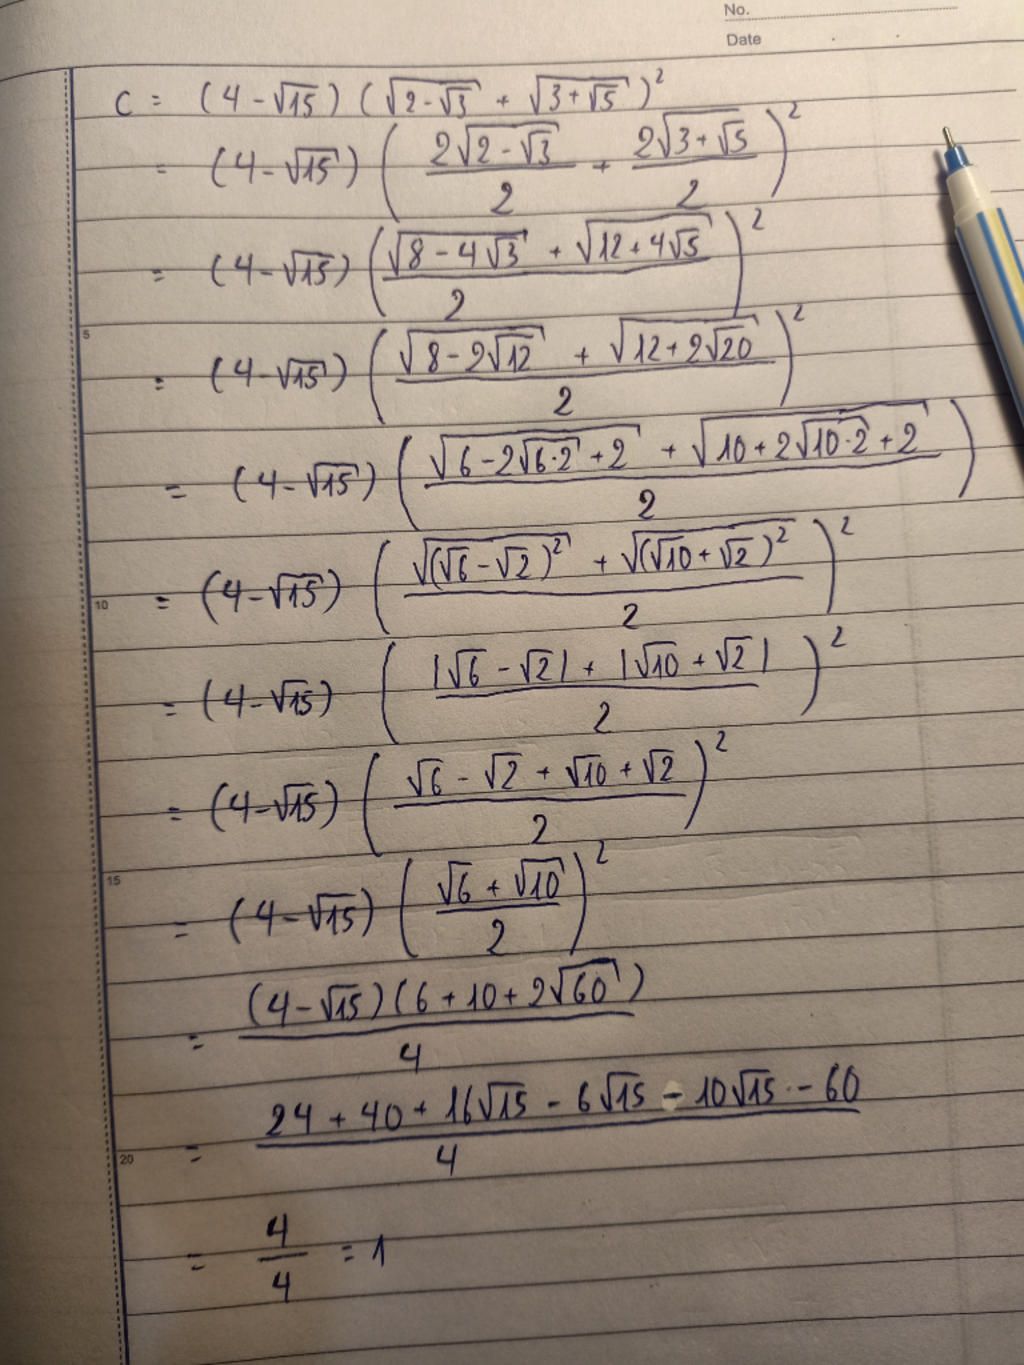 No.
Date
C = (4 - √15) (√(2 - √3) + √(3 + √5))²
= (4 - √15) ((2√(2 - √3))/2 + (2√(3 + √5))/2)²
= (4 - √15) ((√(8 - 4√3) + √(12 + 4√5))/2)²
5
= (4 - √15) ((√(8 - 2√12) + √(12 + 2√20))/2)²
= (4 - √15) ((√(6 - 2√(6·2) + 2) + √(10 + 2√(10·2) + 2))/2)
10
= (4 - √15) ((√((√6 - √2)²) + √((√10 + √2)²))/2)²
= (4 - √15) ((|√6 - √2| + |√10 + √2|)/2)²
= (4 - √15) ((√6 - √2 + √10 + √2)/2)²
15
= (4 - √15) ((√6 + √10)/2)²
= ((4 - √15)(6 + 10 + 2√60))/4
= (24 + 40 + 16√15 - 6√15 - 10√15 - 60)/4
20
= 4/4 = 1